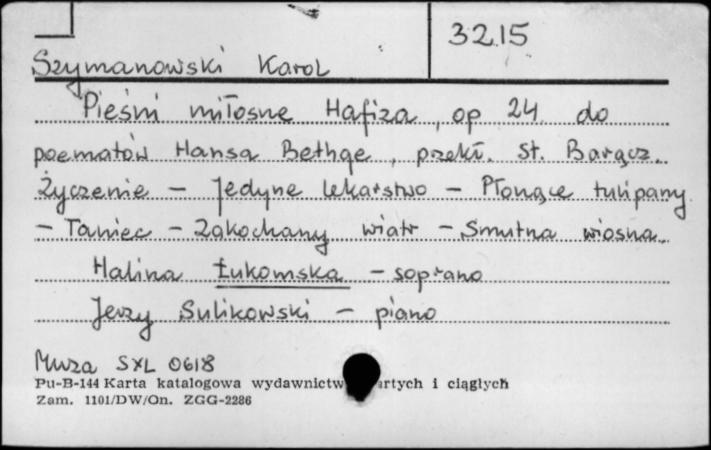 3215
Szymanowski Karol
Pieśni miłosne Hafiza, op 24 do
poematów Hansa Bethge, przekł. St. Barącz.
Życzenie – Jedyne lekarstwo – Płonące tulipany
– Taniec – Zakochany wiatr – Smutna wiosna.
Halina Łukomska – soprano
Jerzy Sulikowski – piano
Muza SXL 0618
Pu-B-144 Karta katalogowa wydawnictw artych i ciągłych
Zam. 1101/DW/On. ZGG-2286